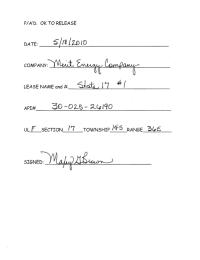 P/A'D. OK TO RELEASE
DATE: 5/19/2010
COMPANY: Merit Energy Company
LEASE NAME and #: State 17 #1
API# 30-025-26190
UL F SECTION 17 TOWNSHIP 14S RANGE 36E
SIGNED: